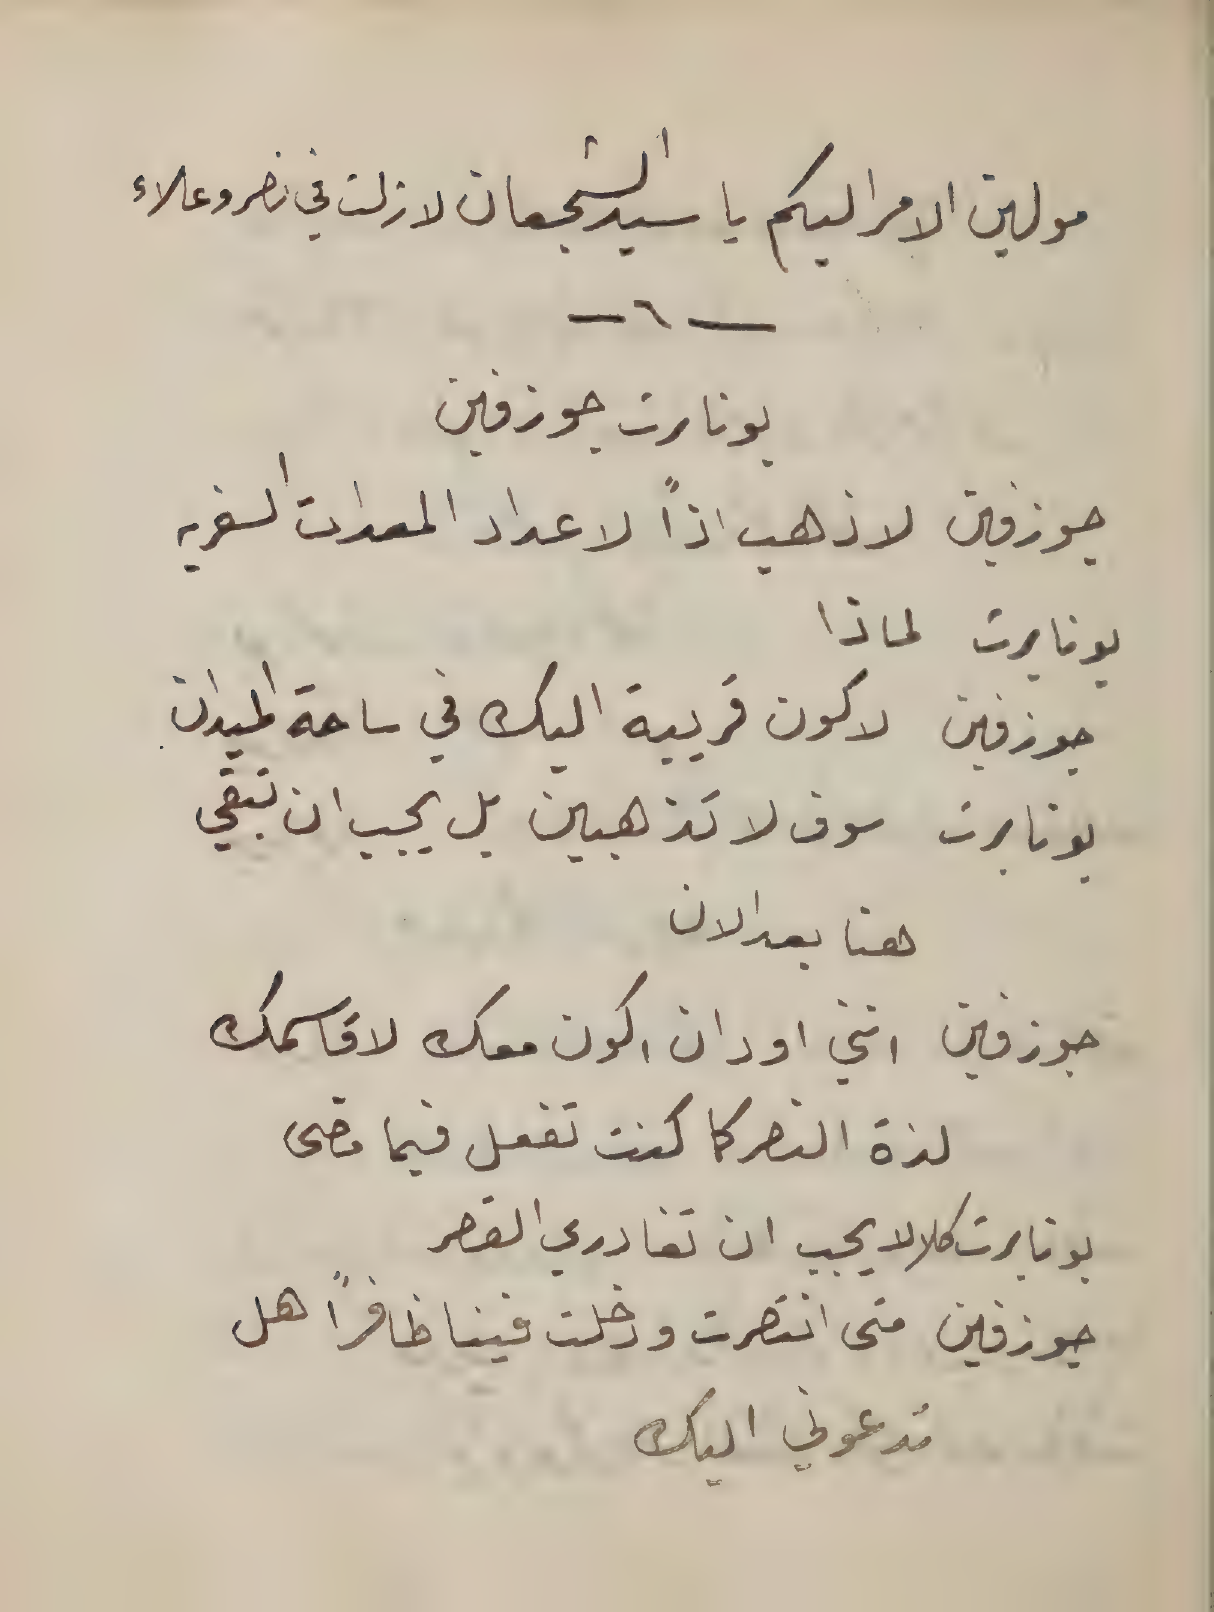 مولين الامر اليكم يا سيد الشجعان لا زلت في نصر وعلاء
— ٦ —
بونابرت جوزفين
جوزفين لاذهب اذاً لاعداد المعدات السفريه
بونابرت لماذا
جوزفين لاكون قريبة اليك في ساحة الميدان
بونابرت سوف لا تذهبين بل يجب ان تبقي
هنا بعد الان
جوزفين انني اود ان اكون معك لاقاسمك
لذة النصر كما كنت تفعل فيما مضى
بونابرت كلا لا يجب ان تغادري القصر
جوزفين متى انتصرت ودخلت فينا ظافراً هل
تدعوني اليك